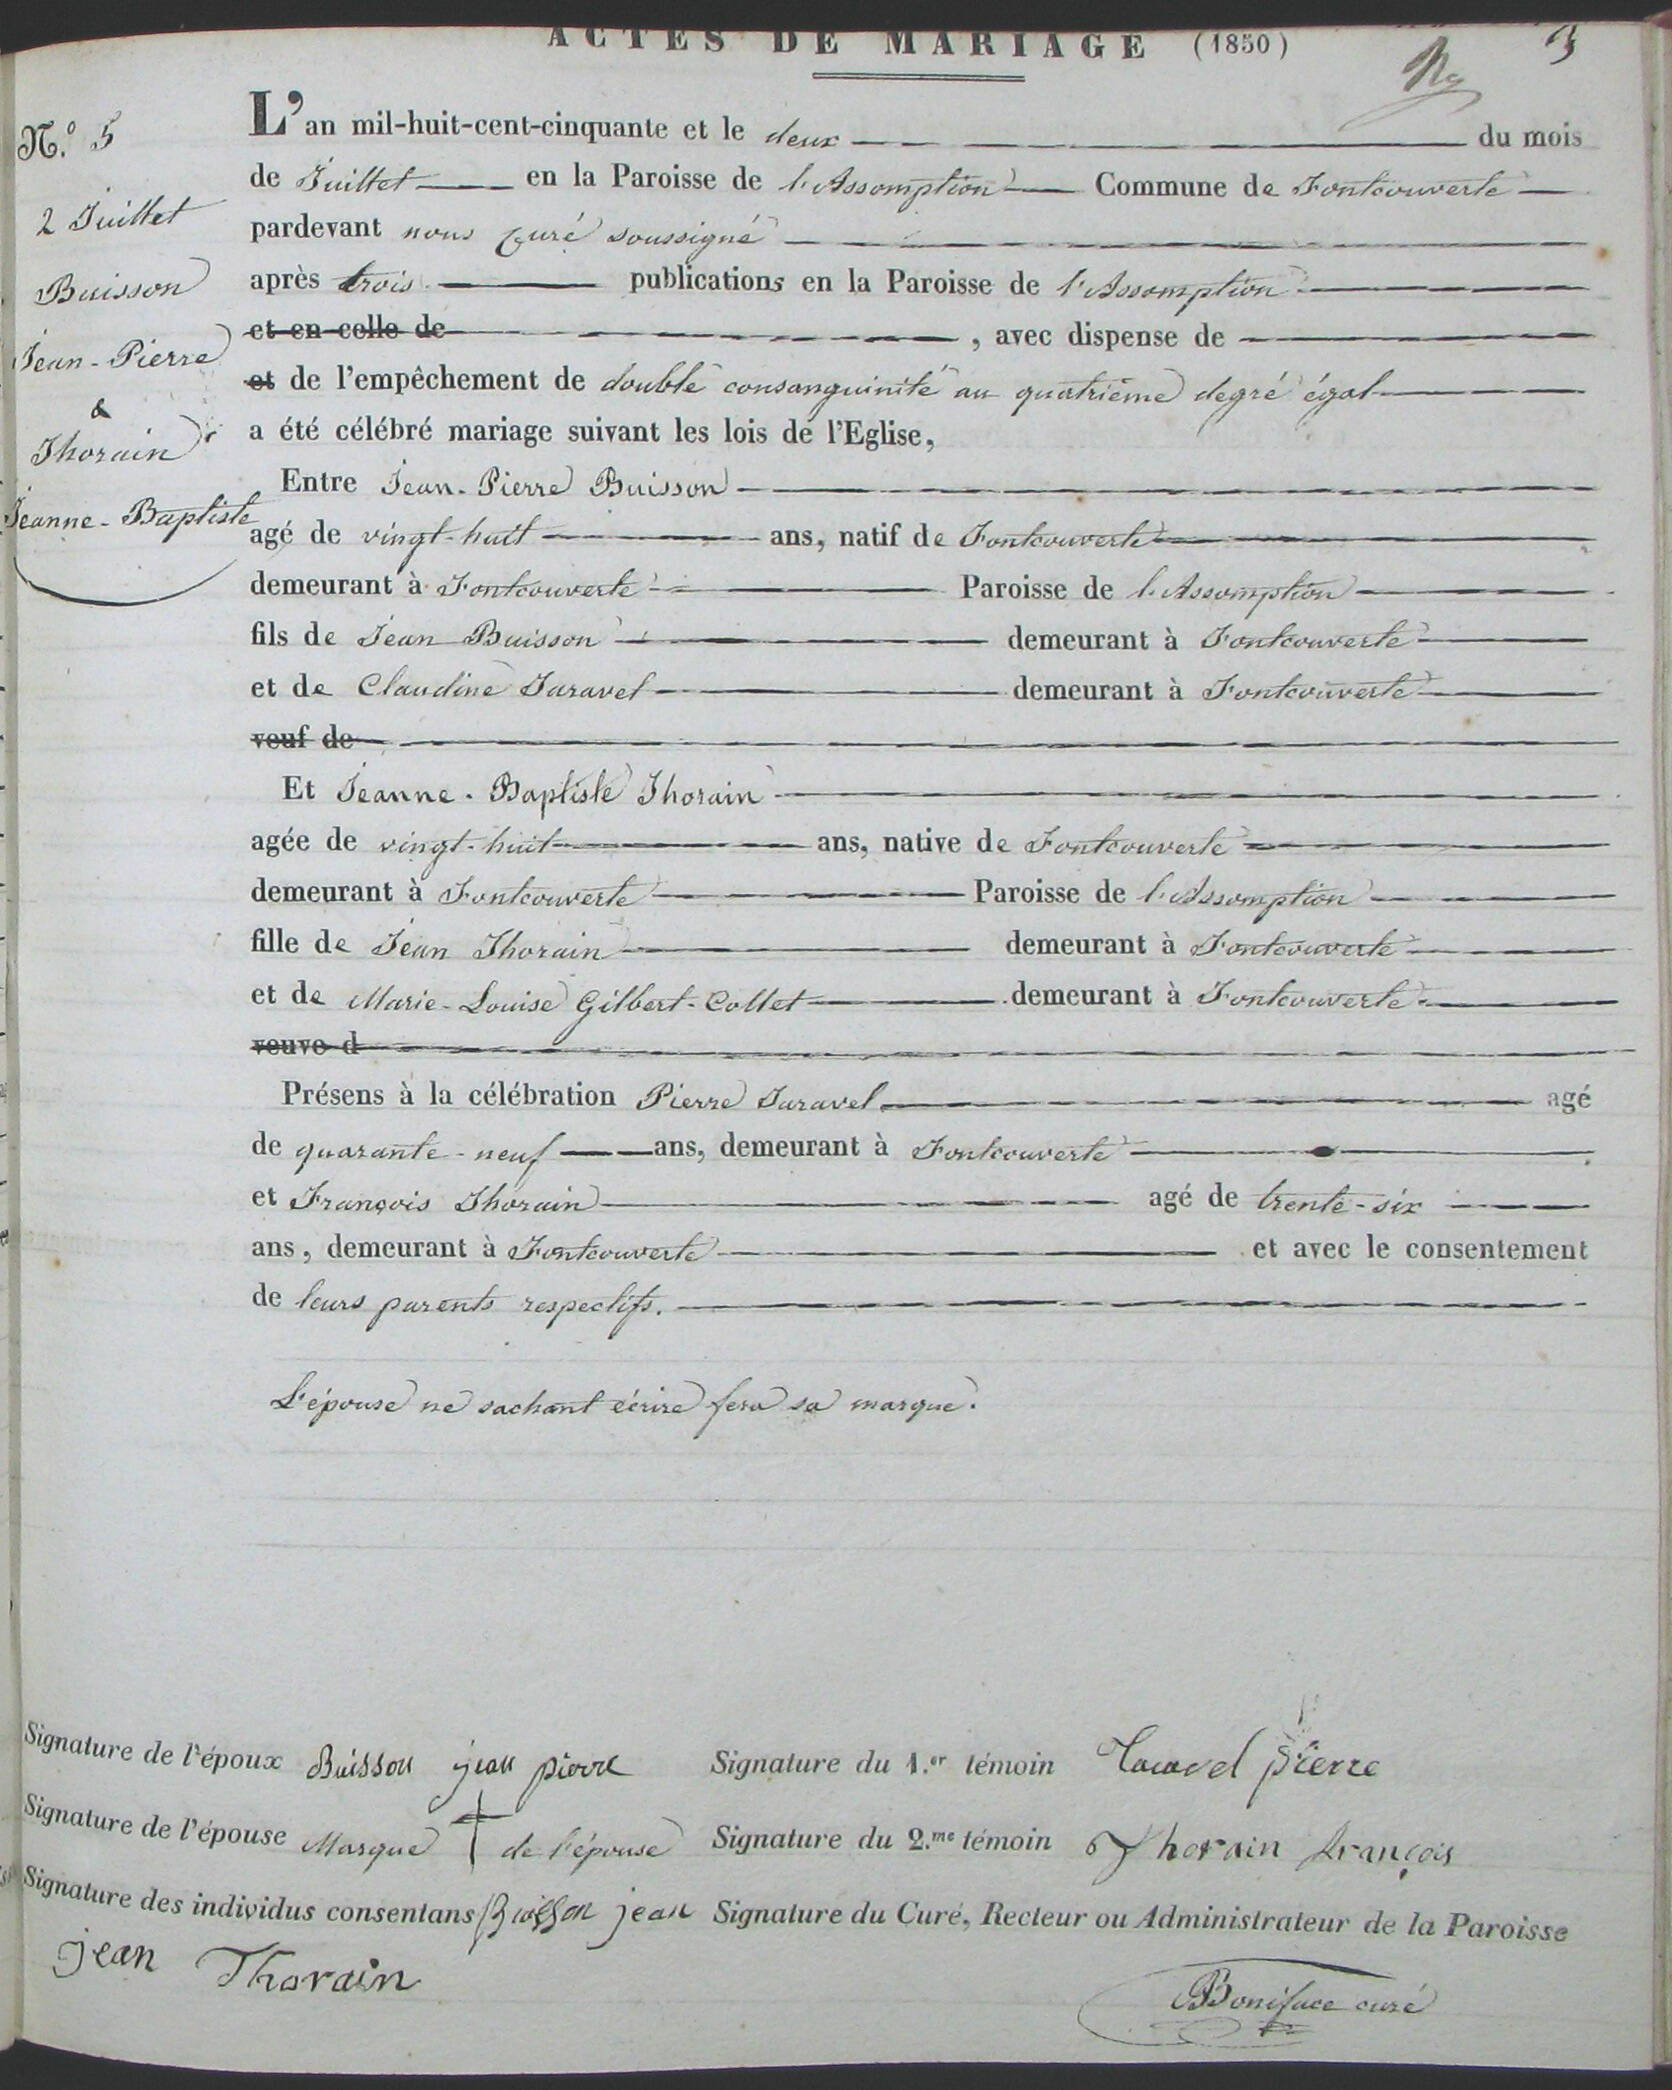 ACTES DE MARIAGE (1850)
N.o 5
2 Juillet
Buisson
Jean-Pierre
&
Thorain
Jeanne-Baptiste
L'an mil-huit-cent-cinquante et le deux du mois
de Juillet en la Paroisse de l'Assomption Commune de Fontcouverte
pardevant nous Curé soussigné
après trois publications en la Paroisse de l'Assomption
et en celle de , avec dispense de
et de l'empêchement de double consanguinité au quatrième degré égal
a été célébré mariage suivant les lois de l'Eglise,
Entre Jean-Pierre Buisson
agé de vingt-huit ans, natif de Fontcouverte
demeurant à Fontcouverte Paroisse de l'Assomption
fils de Jean Buisson demeurant à Fontcouverte
et de Claudine Taravel demeurant à Fontcouverte
veuf de
Et Jeanne-Baptiste Thorain
agée de vingt-huit ans, native de Fontcouverte
demeurant à Fontcouverte Paroisse de l'Assomption
fille de Jean Thorain demeurant à Fontcouverte
et de Marie-Louise Gilbert-Collet demeurant à Fontcouverte
veuve d
Présens à la célébration Pierre Taravel agé
de quarante-neuf ans, demeurant à Fontcouverte
et François Thorain agé de trente-six
ans, demeurant à Fontcouverte et avec le consentement
de leurs parents respectifs.
L'épouse ne sachant écrire fera sa marque.
Signature de l'époux Buisson jean pierre Signature du 1.er témoin Taravel pierre
Signature de l'épouse Marque † de l'épouse Signature du 2.me témoin Thorain françois
Signature des individus consentans Buisson jean Signature du Curé, Recteur ou Administrateur de la Paroisse
jean Thorain
Boniface curé